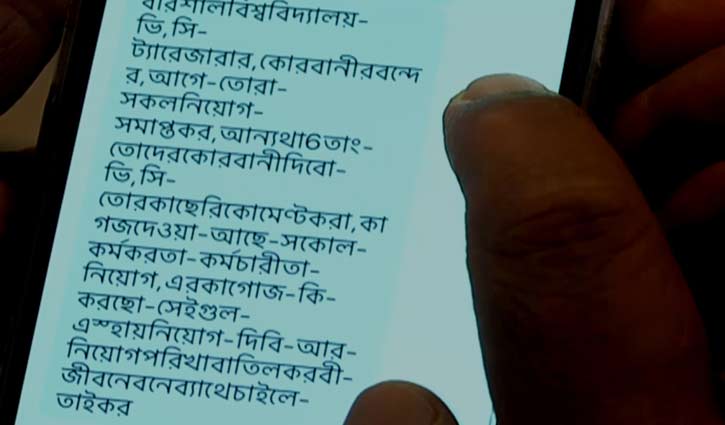 বরিশালবিশ্ববিদ্যালয়-
ভি,সি-
ট্যারেজারার,কোরবানীরবন্দে
র,আগে-তোরা-
সকলনিয়োগ-
সমাপ্তকর,আন্যথা6তাং-
তোদেরকোরবানীদিবো-
ভি,সি-
তোরকাছেরিকোমেণ্টকরা,কা
গজদেওয়া-আছে-সকোল-
কর্মকরতা-কর্মচারীতা-
নিয়োগ,এরকাগোজ-কি-
করছো-সেইগুল-
এস্হায়নিয়োগ-দিবি-আর-
নিয়োগপরিখাবাতিলকরবী-
জীবনেবনেব্যাথেচাইলে-
তাইকর